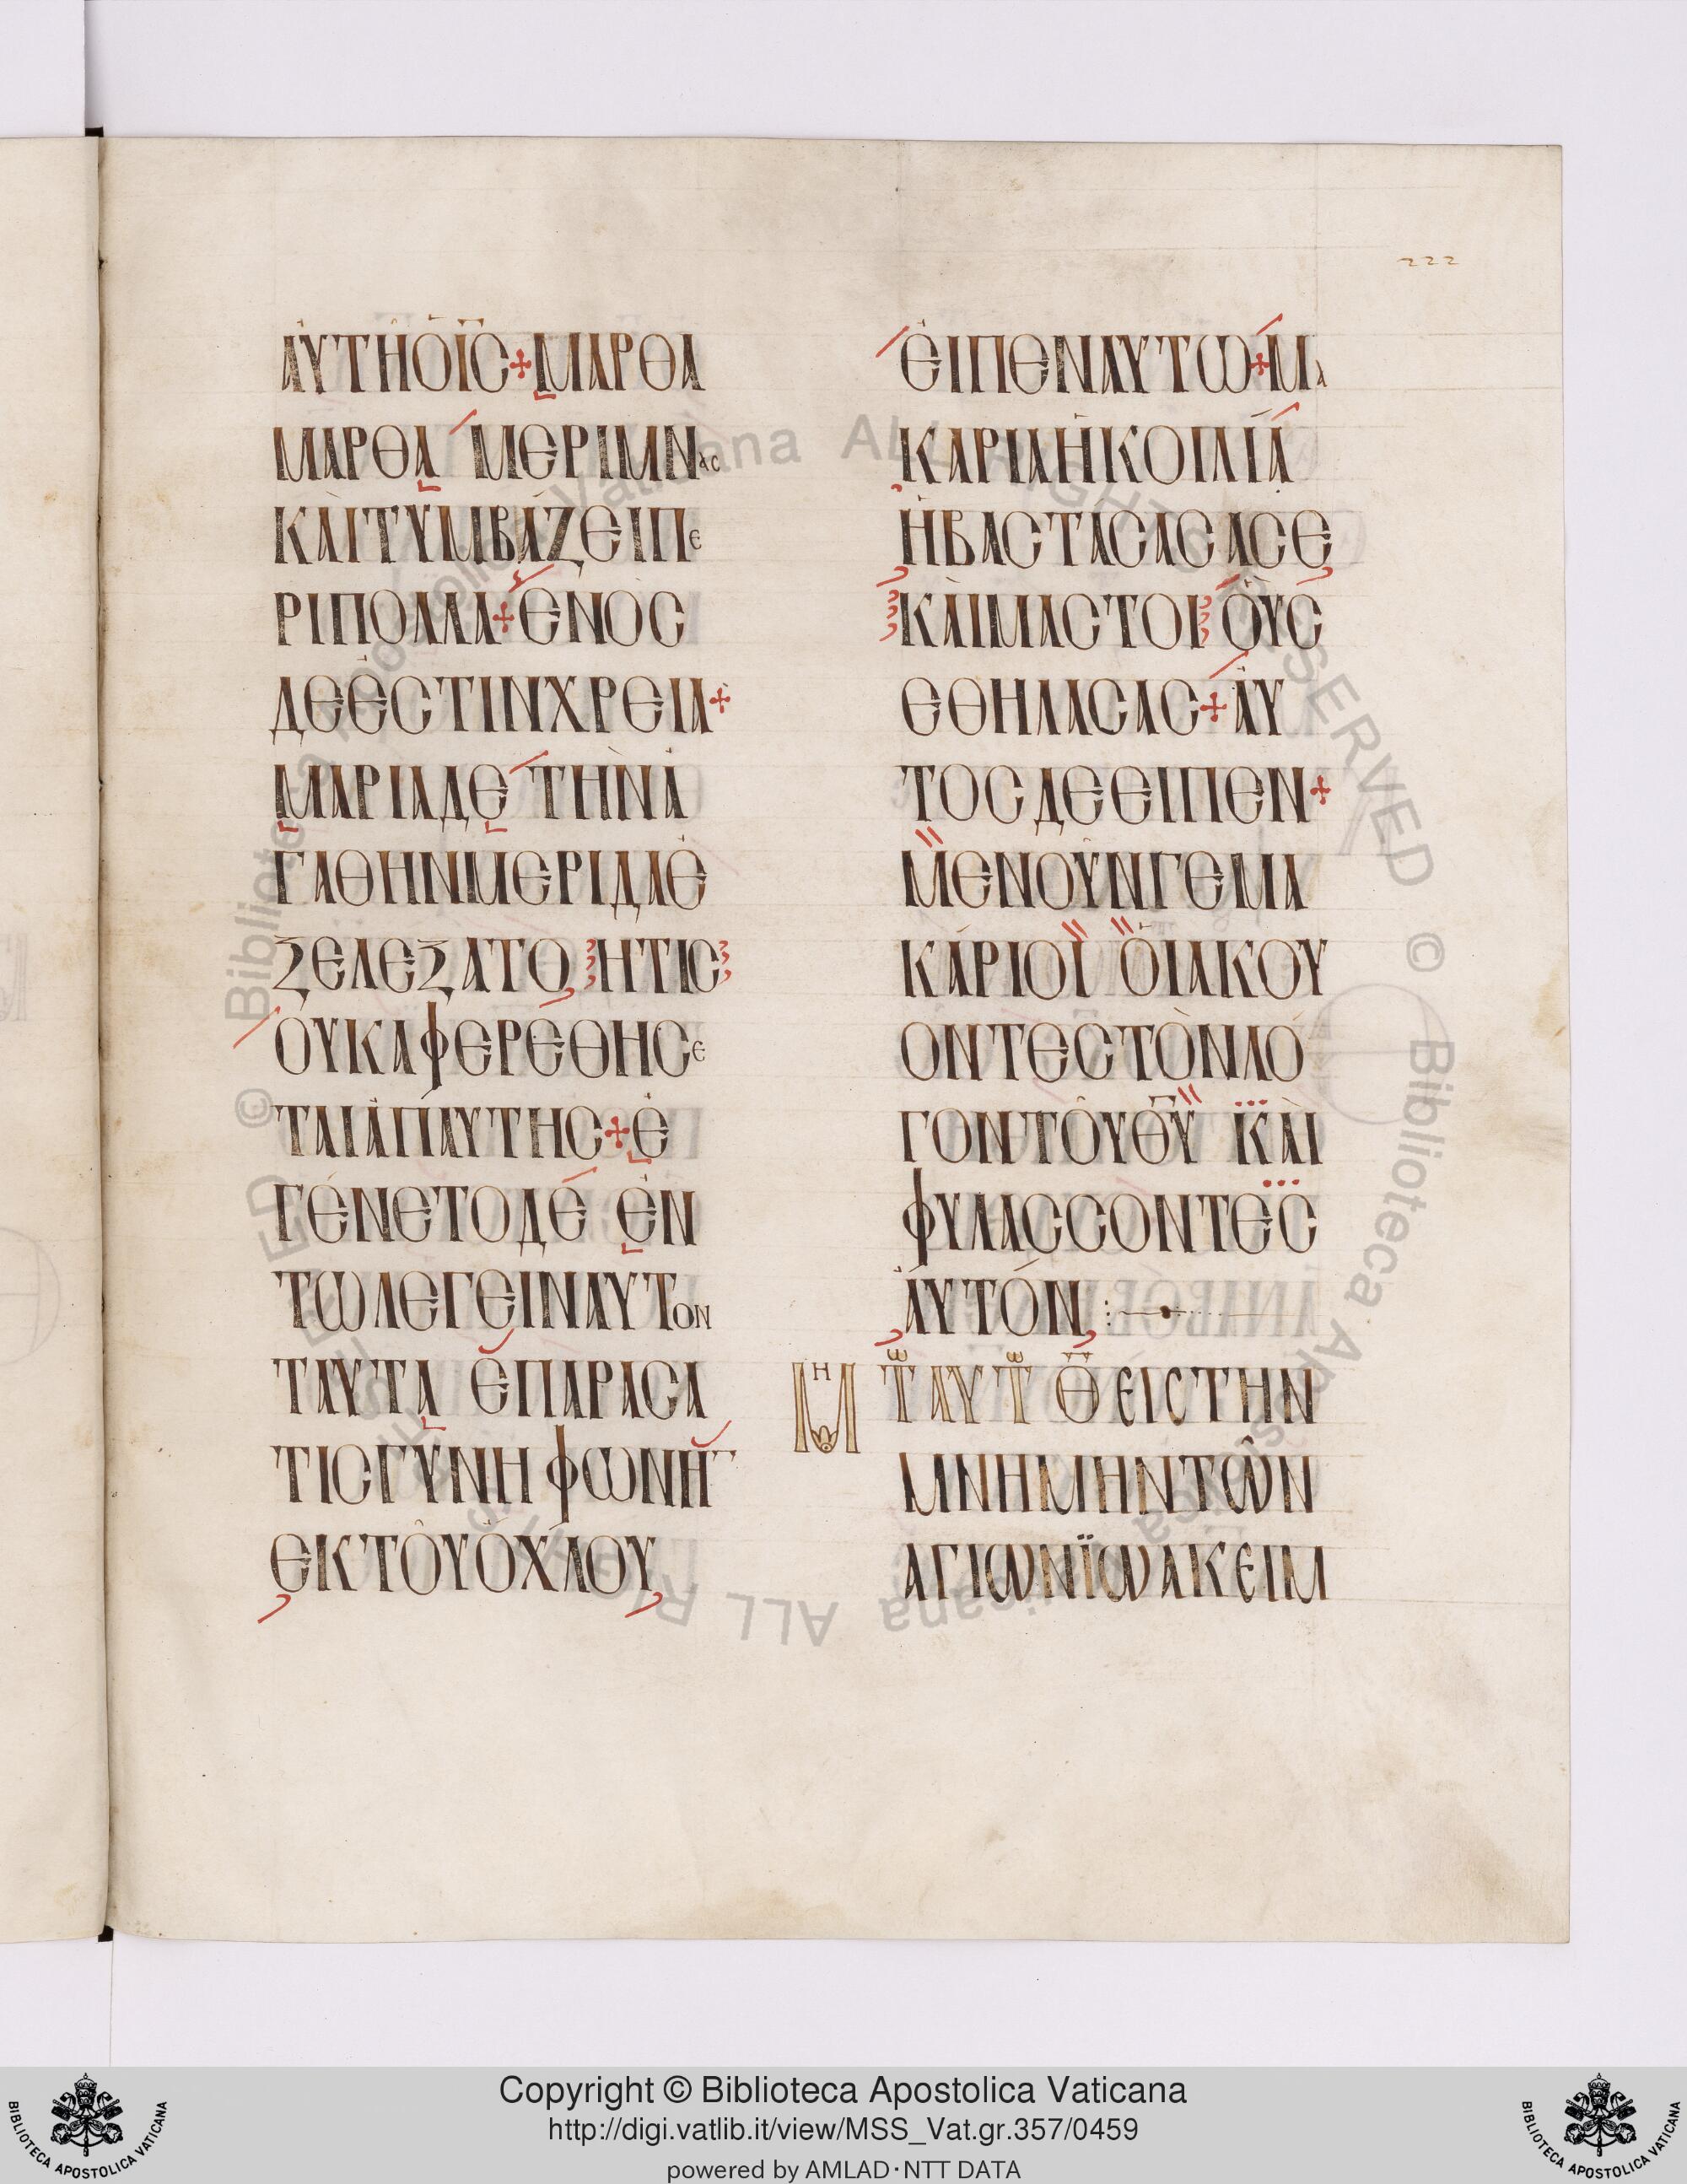 222
ΑΥΤΗΟΪΣ+ΜΑΡΘΑ
ΜΑΡΘΑ ΜΕΡΙΜΝΑΣ
ΚΑΙΤΥΜΒΑΖΕΙΠΕ
ΡΙΠΟΛΛΑ+ΕΝΟΣ
ΔΕΕΣΤΙΝΧΡΕΙΑ+
ΜΑΡΙΑΔΕ ΤΗΝΑ
ΓΑΘΗΝΜΕΡΙΔΑΕ
ΞΕΛΕΞΑΤΟ ΗΤΙΣ
ΟΥΚΑΦΕΡΕΘΗΣΕ
ΤΑΙΑΠΑΥΤΗΣ+Ε
ΓΕΝΕΤΟΔΕ ΕΝ
ΤΩΛΕΓΕΙΝΑΥΤΟΝ
ΤΑΥΤΑ ΕΠΑΡΑΣΑ
ΤΙΣΓΥΝΗΦΩΝΗ̅
ΕΚΤΟΥΟΧΛΟΥ
ΕΙΠΕΝΑΥΤΩ+ΜΑ
ΚΑΡΙΑΗΚΟΙΛΙΑ
ΗΒΑΣΤΑΣΑΣΑΣΕ
ΚΑΙΜΑΣΤΟΙ ΟΥΣ
ΕΘΗΛΑΣΑΣ+ΑΥ
ΤΟΣΔΕΕΙΠΕΝ+
ΜΕΝΟΥΝΓΕΜΑ
ΚΑΡΙΟΙ ΟΙΑΚΟΥ
ΟΝΤΕΣΤΟΝΛΟ
ΓΟΝΤΟΥΘ̅Υ̅ ΚΑΙ
ΦΥΛΑΣΣΟΝΤΕΣ
ΑΥΤΟΝ:
ΜΗ ΤΩ ΑΥΤΩ Θ ΕΙΣΤΗΝ
ΜΝΗΜΗΝΤΩΝ
ΑΓΙΩΝΪΩΑΚΕΙΜ
Copyright © Biblioteca Apostolica Vaticana
http://digi.vatlib.it/view/MSS_Vat.gr.357/0459
powered by AMLAD·NTT DATA
BIBLIOTECA APOSTOLICA VATICANA
BIBLIOTECA APOSTOLICA VATICANA